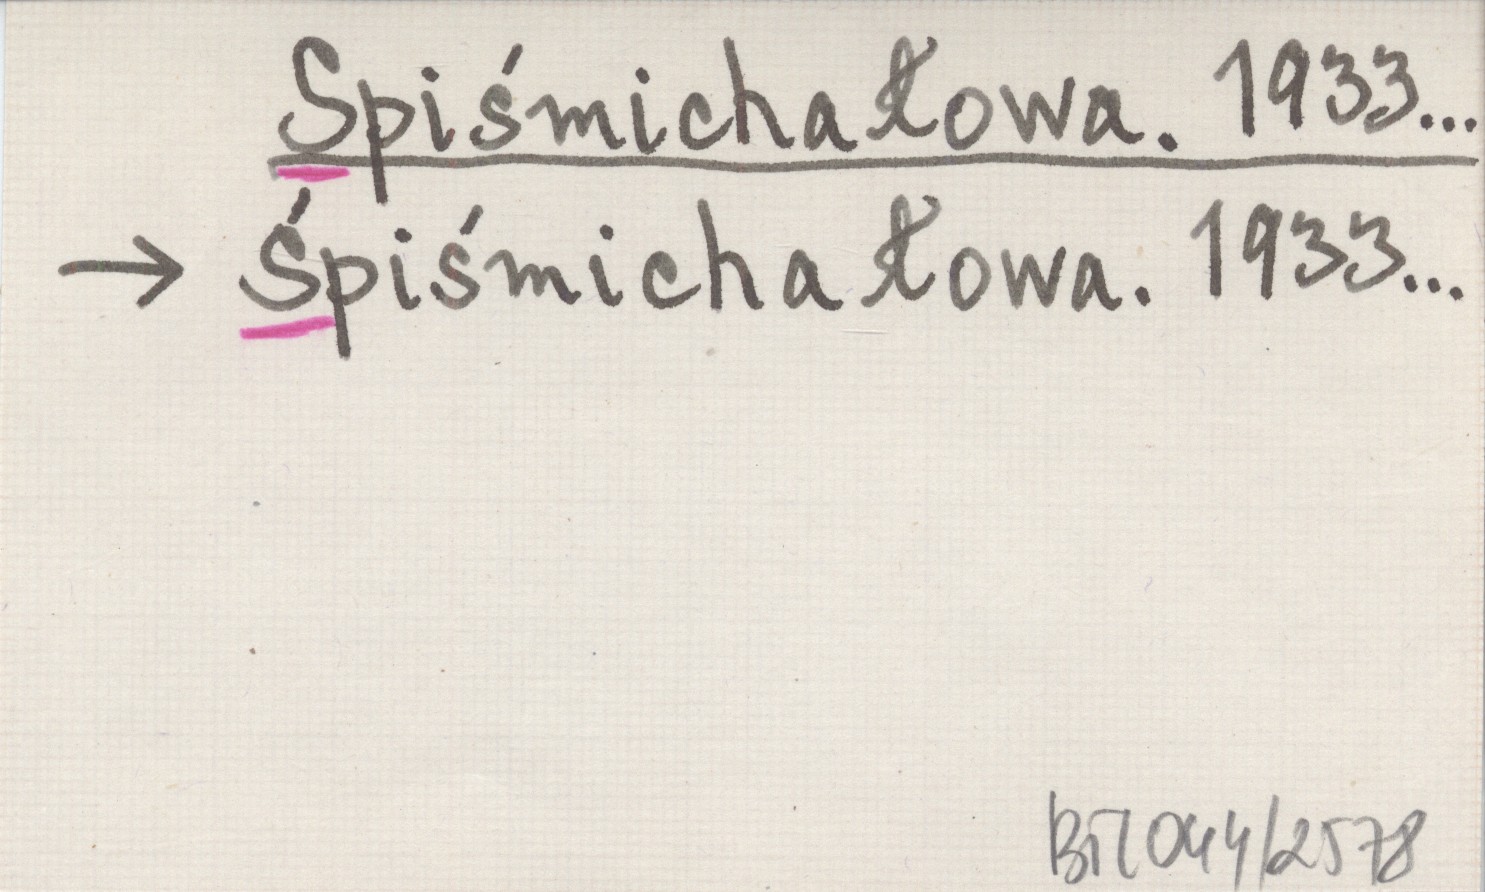 Spiśmichałowa. 1933...
→ Śpiśmichałowa. 1933...
044/2578